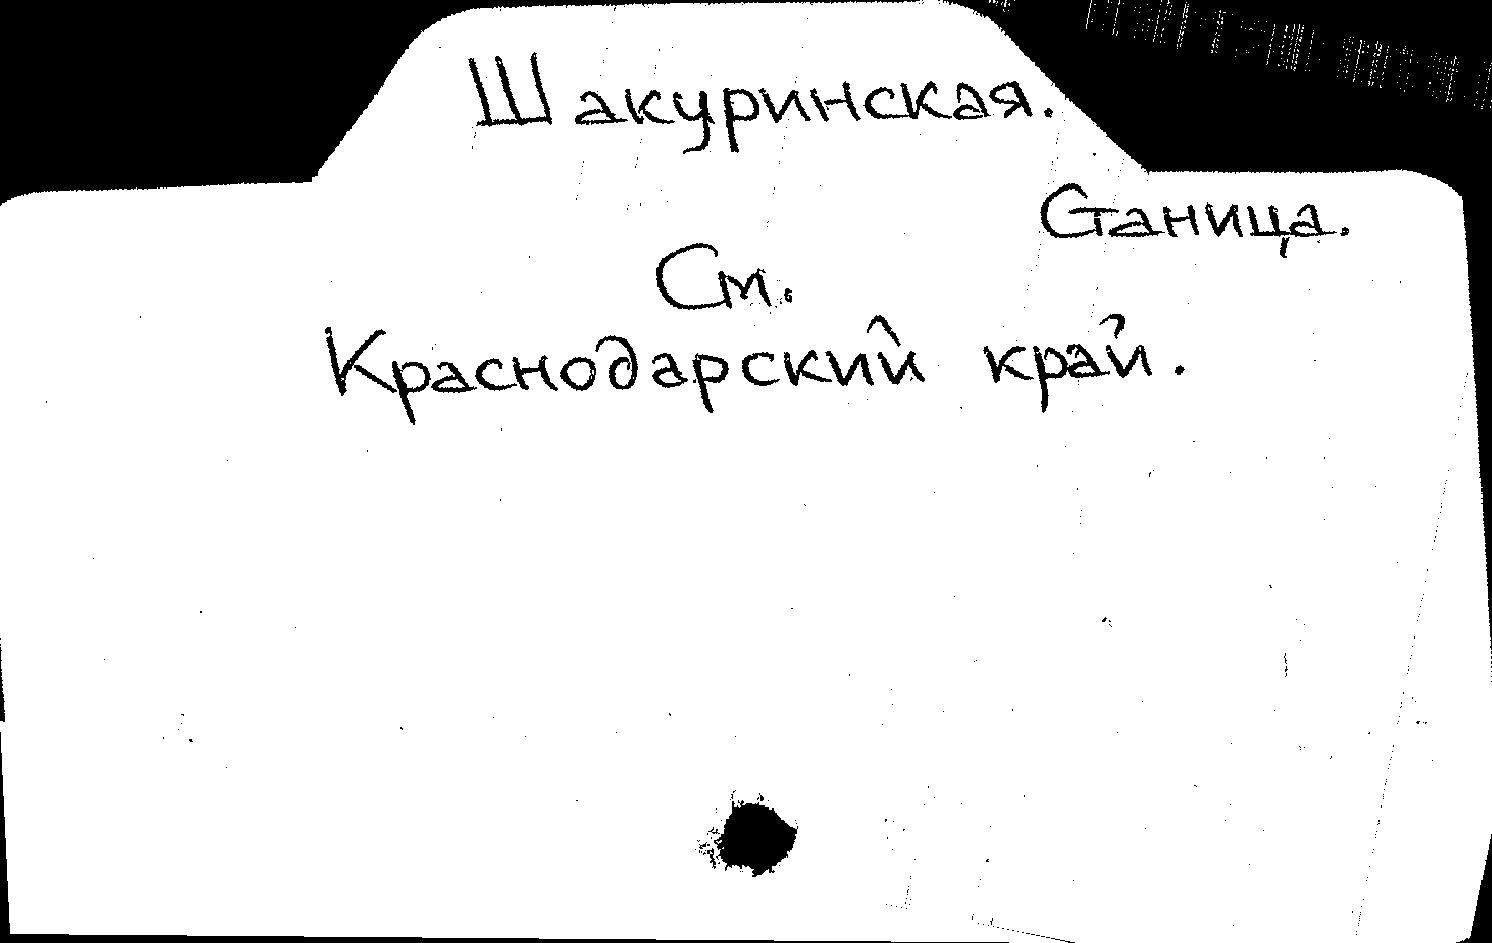 Шакуринская.
Станица.
См.
Краснодарский край.